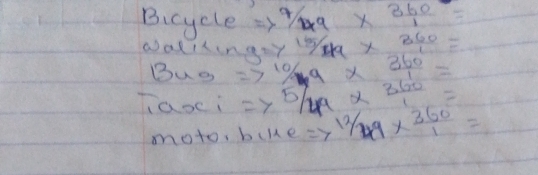 Bicycle => 9/49 x 360/1 =
Walking => 15/49 x 360/1 =
Bus => 10/49 x 360/1 =
Taxi => 5/49 x 360/1 =
motorbike => 12/49 x 360/1 =